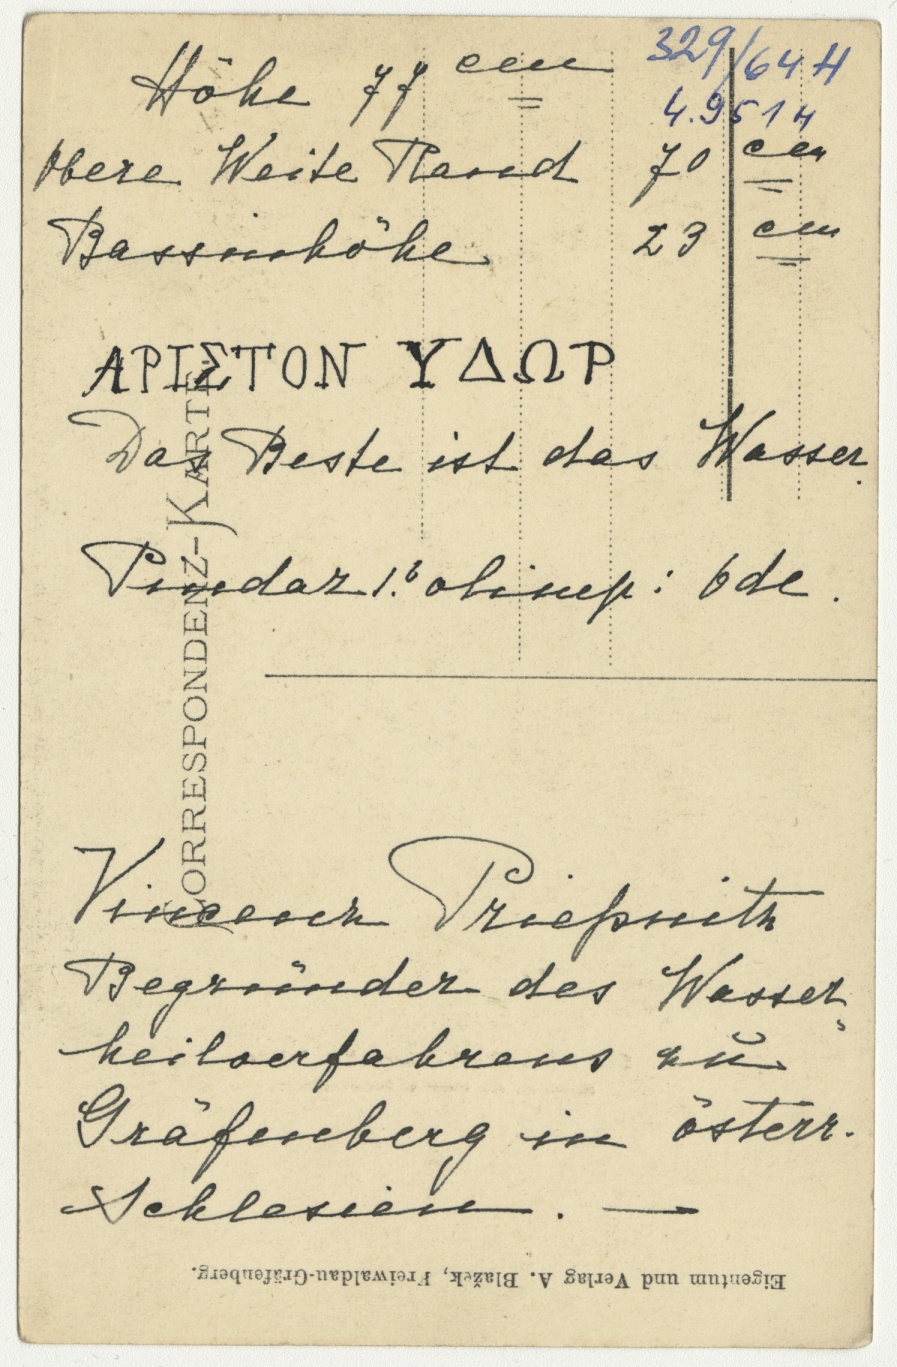 329/64 H
4.951 H
Höhe 77 cm
Obere Weite Rand 70 cm
Bassinhöhe 23 cm
ΑΡΙΣΤΟΝ ΥΔΩΡ
Das Beste ist das Wasser.
Pindar 1. olimp: Ode.
KORRESPONDENZ-KARTE
Vincenz Prießnitz
Begründer des Wasser
heilverfahrens zu
Gräfenberg in österr.
Schlesien. —
Eigentum und Verlag A. Blažek, Freiwaldau-Gräfenberg.